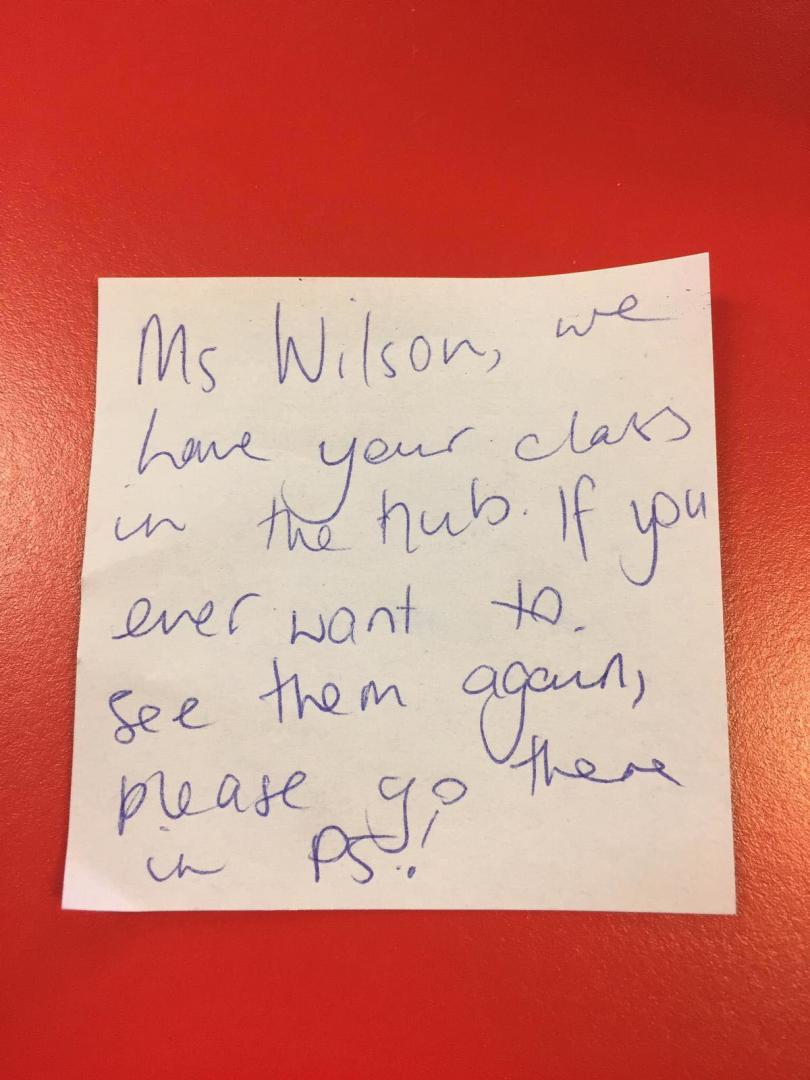 Ms Wilson, we
have your class
in the hub. If you
ever want to
see them again,
please go there
in P5!